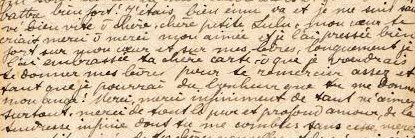 battre bien fort! J'étais bien ému va et je me suis sau
vi bien vite ô chère, chère petite Lulu, mon cœur te
criait merci ô merci mon aimée et je l'ai pressée bien
fort sur mon cœur et sur mes lèvres, longuement je
l'ai embrassée ta chère carte ô que je voudrais
te donner mes lèvres pour te remercier assez et
tant que je pourrai du bonheur que tu me donnes
mon ange! Merci, merci infiniment de tant m'aimer
surtout, merci de tout le pur et profond amour, de la
tendresse infinie dont tu me combles sans cesse ma